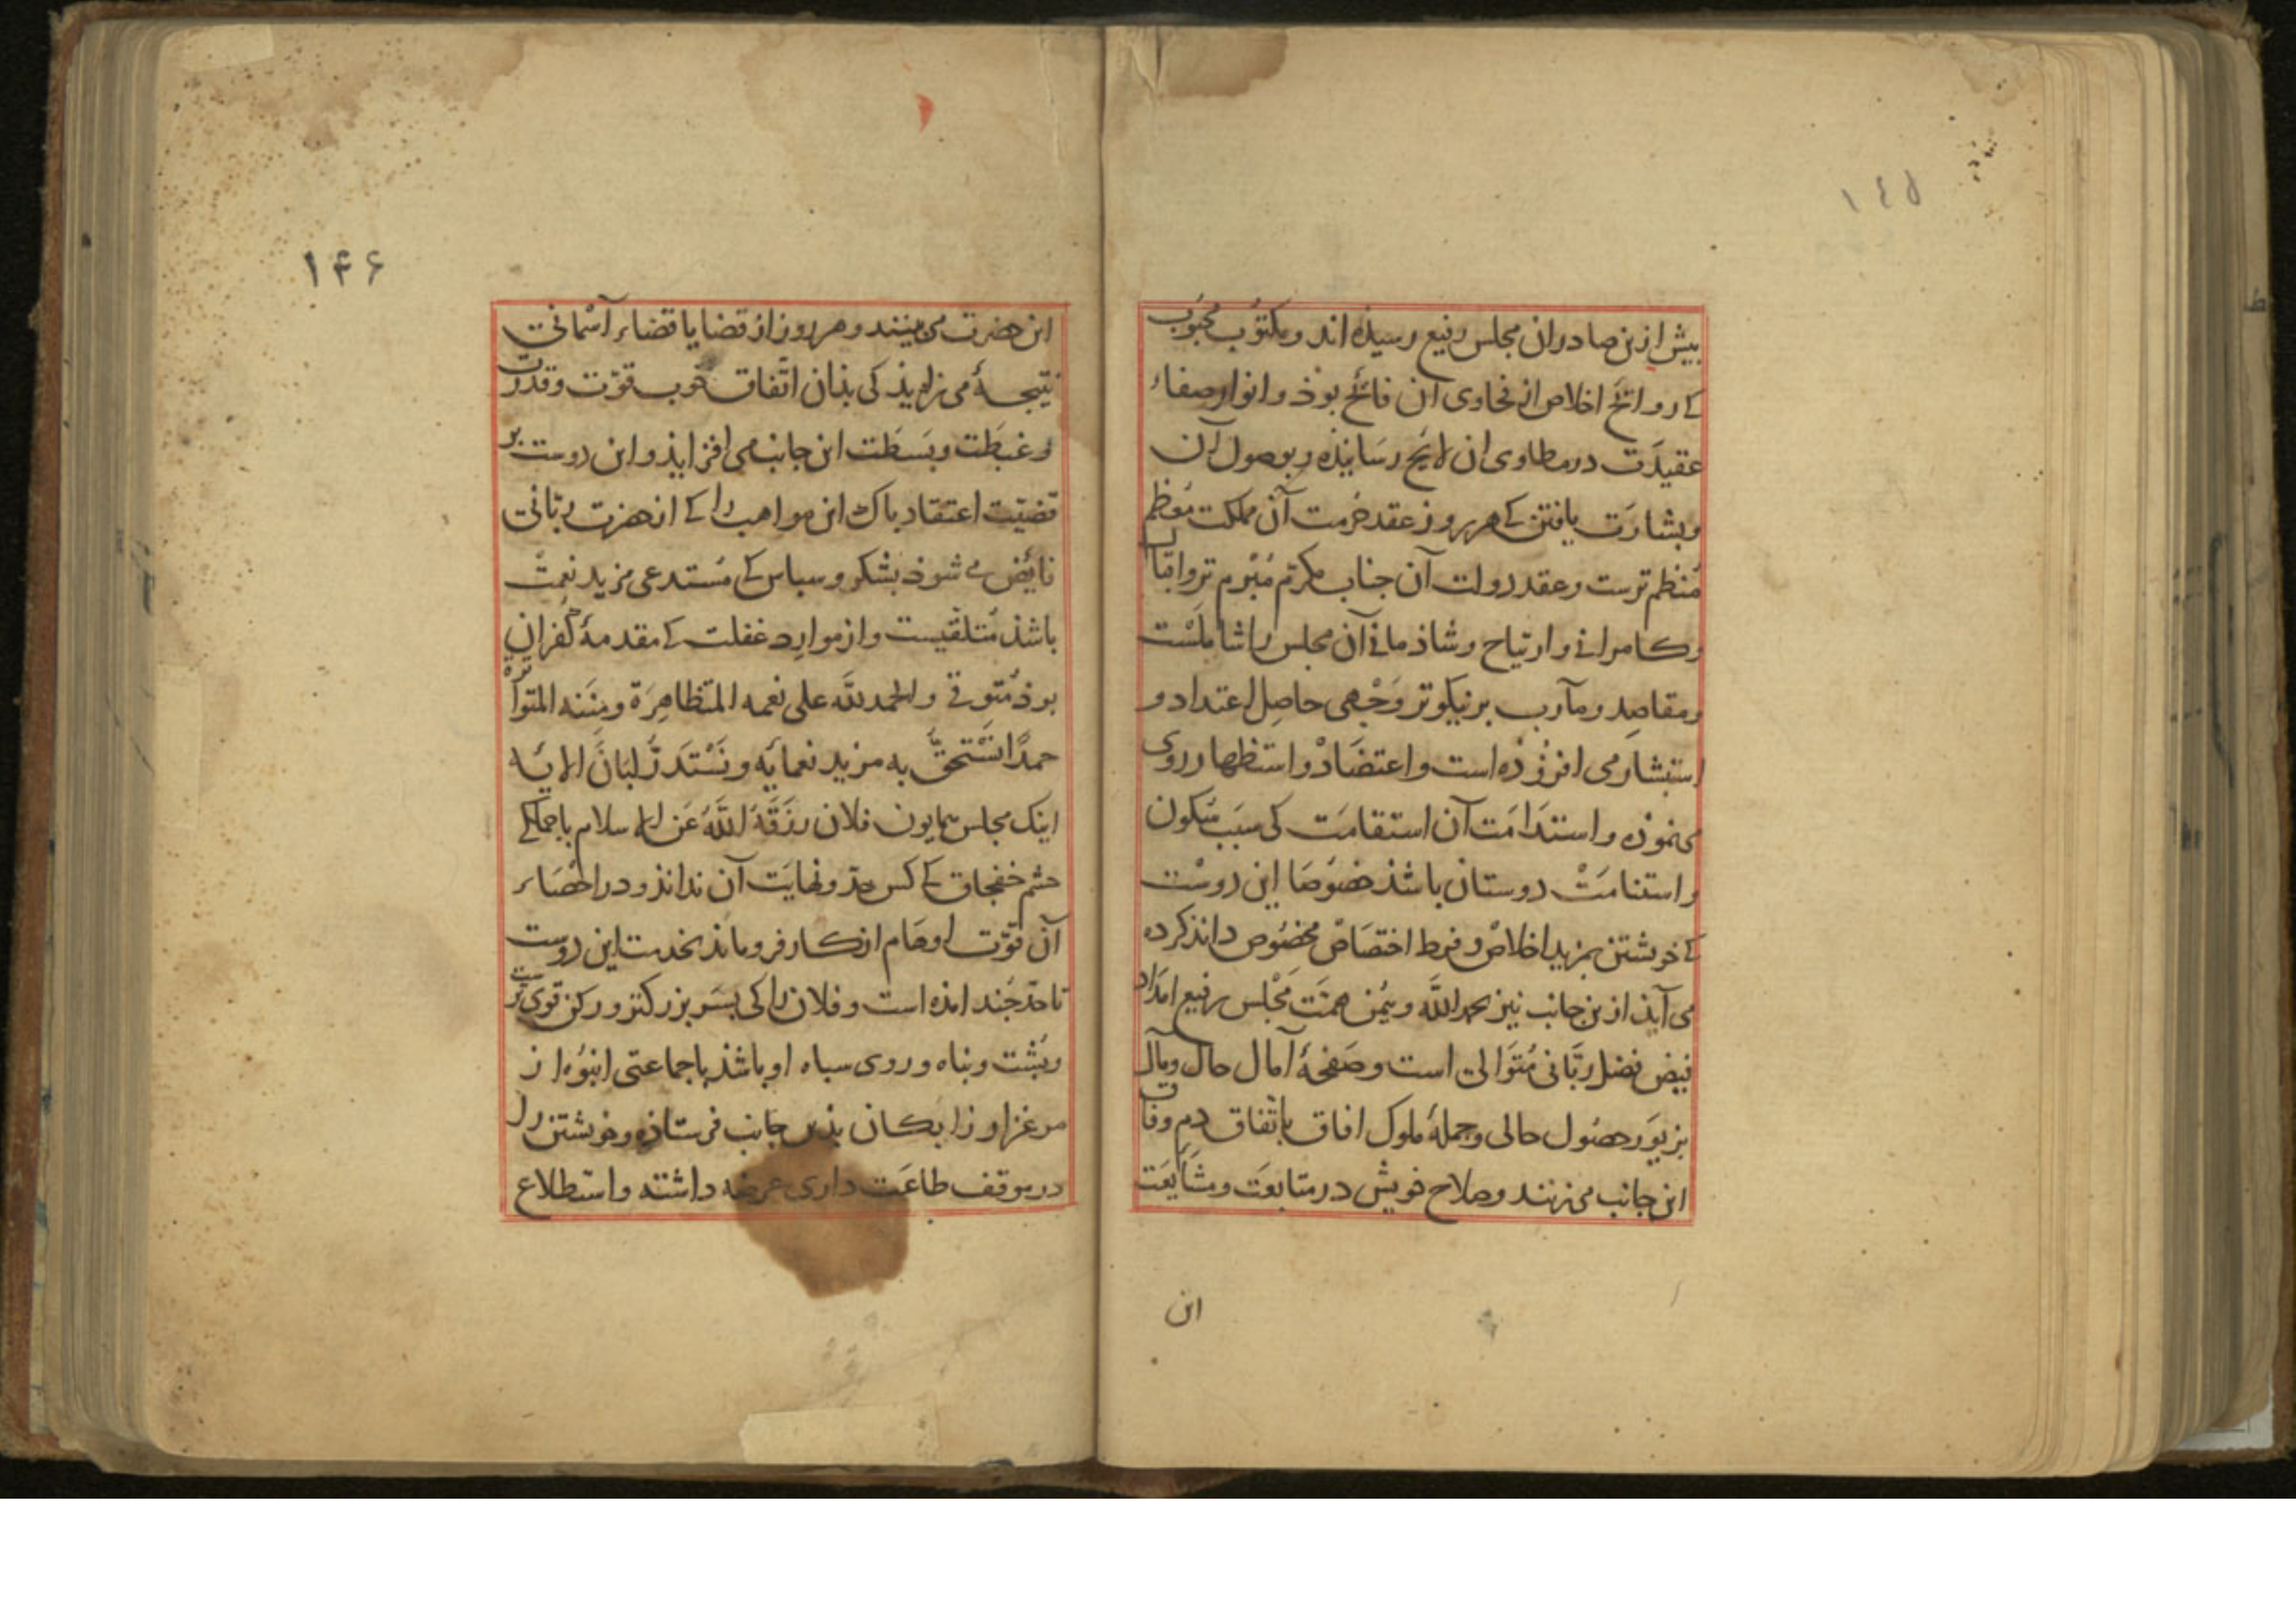 ١٤٥
بیش ازین صادران مجلس رفیع رسیذه اند و مکتوب محبُوب
کے روائح اخلاص از فحاوی آن فائح بوذ و انوار صفاء
عقیدَت در مطاوی ان لایح رسَانیذه و بوصول آن
و بشارَت یافتن کے هر روز عقد حُرمت آن مملکت مُعَظم
مُنظم ترست و عقد دولت آن جناب مکرّم مُبْرم تر و اقبال
و کامرانی و ارتیاح و شاذمانی آن مجلس را شاملَسْت
و مقاصِد و مآرب بر نیکوتر وَجْهی حاصِل اعتداد و
استبشار می افزُوْذه است و اعتضَادْ و استظهار روی
می نموْذه و استدَامَت آن استقامَت کی سَبَب سُکون
و استنامَتْ دوستان باشذ خصُوصَا این دوسْت
کے خویشتن بمزید اخلاصْ و فرط اختصَاصْ مخصُوص داند کرده
می آیذ ازین جانب نیز بحمد اللّٰه و یُمْن همّت مَجْلس رفیع امدَاد
فیض فضل ربَّانی مُتَوَالی است و صَفحۀ آمال حال و مآل
بزیوَر حصُول حالی و جملۀ ملوک افاق باتّفاق دم وفاق
این جانب می زنند و صلاح خویش در متابعَت و مشَایَعَت
این
١۴۶
این حضرت می بینند و هر روز از قضایا قضاء آسْمانی
نتیجۀ می زاید کی بذان اتّفاق خوب قوّت و قدرت
و غبطَت و بَسطَت این جانب می افزایذ و این دوست بر
قضیّت اعتقاد باک این مواهب را کے از حضرت ربّانی
فائض می شوذ بشکر و سباس کے مُستدعی مزید نعمتْ
باشذ مُتلقّیست و از موارد غفلت کے مقدمۀ کُفران
بوذ مُتوقّی و الحمد للّٰه علی نعمه المتظاهِرَة و مِنَنه المتواترَة
حمدًا نَسْتَحقّ به مزید نعمایه و نَسْتَدرّ لبَانَ الایه
اینک مجلس همایون فلان رزَقَهُ اللّٰهُ عَن الاسلام با جملگی
حشم خفجاق کے کس حدّ و نهایَت آن نداند و در احْصَاء
آن قوّت اوهَام از کار فرو ماند بخدمت این دوست
تا حدّ جَند امذه است و فلان را کی بسَر بزرکتر و رکن قوی تر
و بُشت و بناه و روی سباه او باشذ با جماعتی انبُوه از
مرغزاوزابکان بذین جانب فرستاذه و خویشتن را
در موقف طاعَت داری عرضه داشته و استطلاع